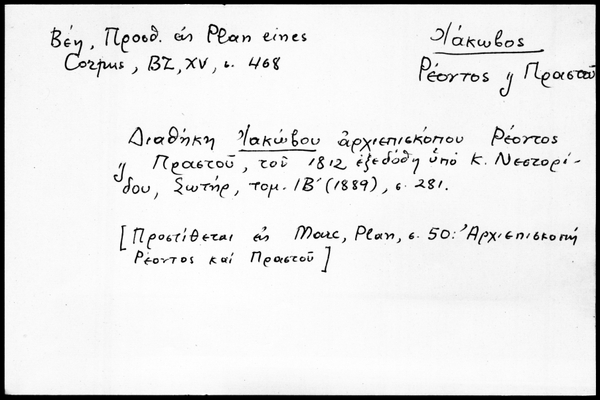 Βέη, Προσθ. εἰς Plan eines
Corpus, BZ, XV, σ. 468
Ἰάκωβος
Ρέοντος ἢ Πραστοῦ
Διαθήκη Ἰακώβου ἀρχιεπισκόπου Ρέοντος
ἢ Πραστοῦ, τοῦ 1812 ἐξεδόθη ὑπὸ Κ. Νεστορί-
δου, Σωτήρ, τομ. ΙΒ´ (1889), σ. 281.
[Προστίθεται εἰς Marc, Plan, σ. 50: Ἀρχιεπισκοπή
Ρέοντος καὶ Πραστοῦ]